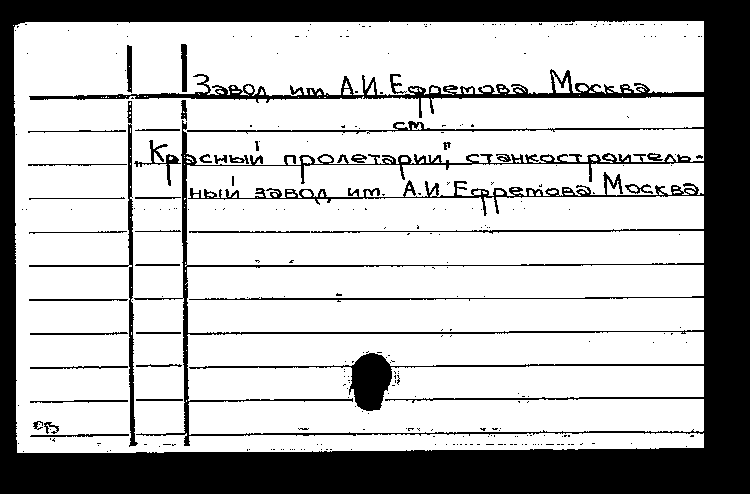 Завод им. А.И. Ефремова. Москва
см.
„Красный пролетарий", станкостроитель-
ный завод им. А.И. Ефремова. Москва.